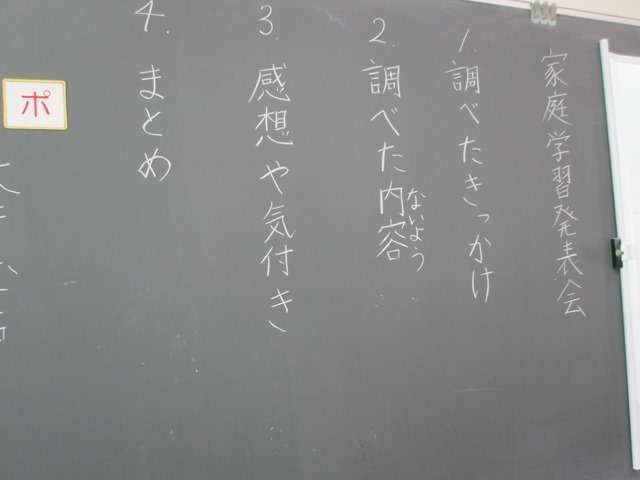 家庭学習発表会
1. 調べたきっかけ
2. 調べた内容
ないよう
3. 感想や気付き
4. まとめ
ポ